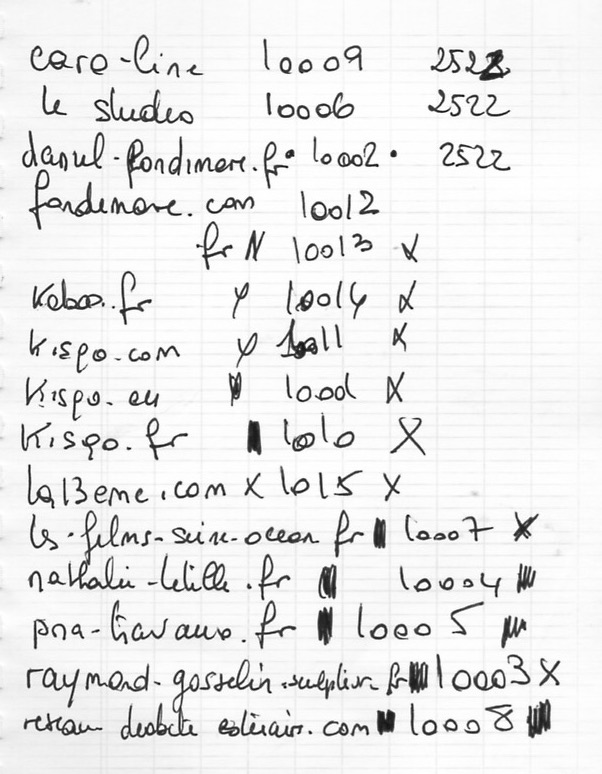 caro-line 10009 2522
le studio 10006 2522
fr. 10002. 2522
.com 10012
fr N 10013 X
.fr y 10014 X
kispo.com y 10011 X
Kispo.eu 10001 X
Kispo.fr 1010 X
la13eme.com X 1015 X
les-films-seine-ocean fr 10007 X
nathalie-letille.fr 10004
pna-travaux.fr 10005
raymond-gosselin-sculpteur fr 10003 X
reseau .com 10008